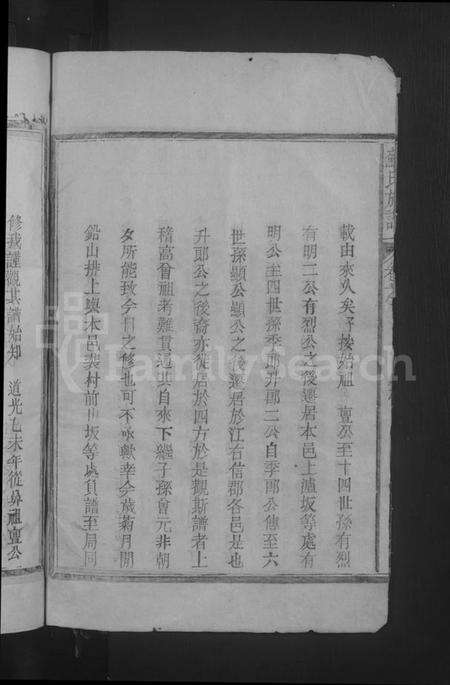 載由來久矣 按始祖 亶公至十四世孫有烈
有明二公有烈公之後遷居本邑上瀘坂等處有
明公至四世孫季郎升郎二公自季郎公傳至六
世孫顯公顯公之後遷居於江右信郡各邑是也
升郎公之後裔亦徙居於四方於是觀斯譜者上
稽高曾祖考難貫通此自來下繼子孫曾元非朝
夕所能致今日之修也可不 歟幸今歲菊月開
鉛山排上與本邑 村前 坂等處負譜至局同
修 謹觀其譜始知 道光乙未年從 祖亶公
氏族譜
FamilySearch